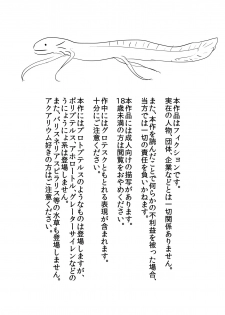 本作品はフィクションです。
実在の人物、団体、企業などとは一切関係ありません。
また、本作を読んだことで何らかの不利益を被った場合、
当方では一切の責任を負いかねます。
本作品には成人向けの描写があります。
18歳未満の方は閲覧をおやめください。
作中にはグロテスクともとれる表現が含まれます。
十分にご注意ください。
本作にはプロトプテルスのようなものは登場しますが、
ポリプテルスやアホロートル、グレーターサイレンなどの
うにょうにょ系は登場しません。
また、バリスネリア・スピラリス等の水草も登場しません。
アクアリウム好きの方はご注意ください。